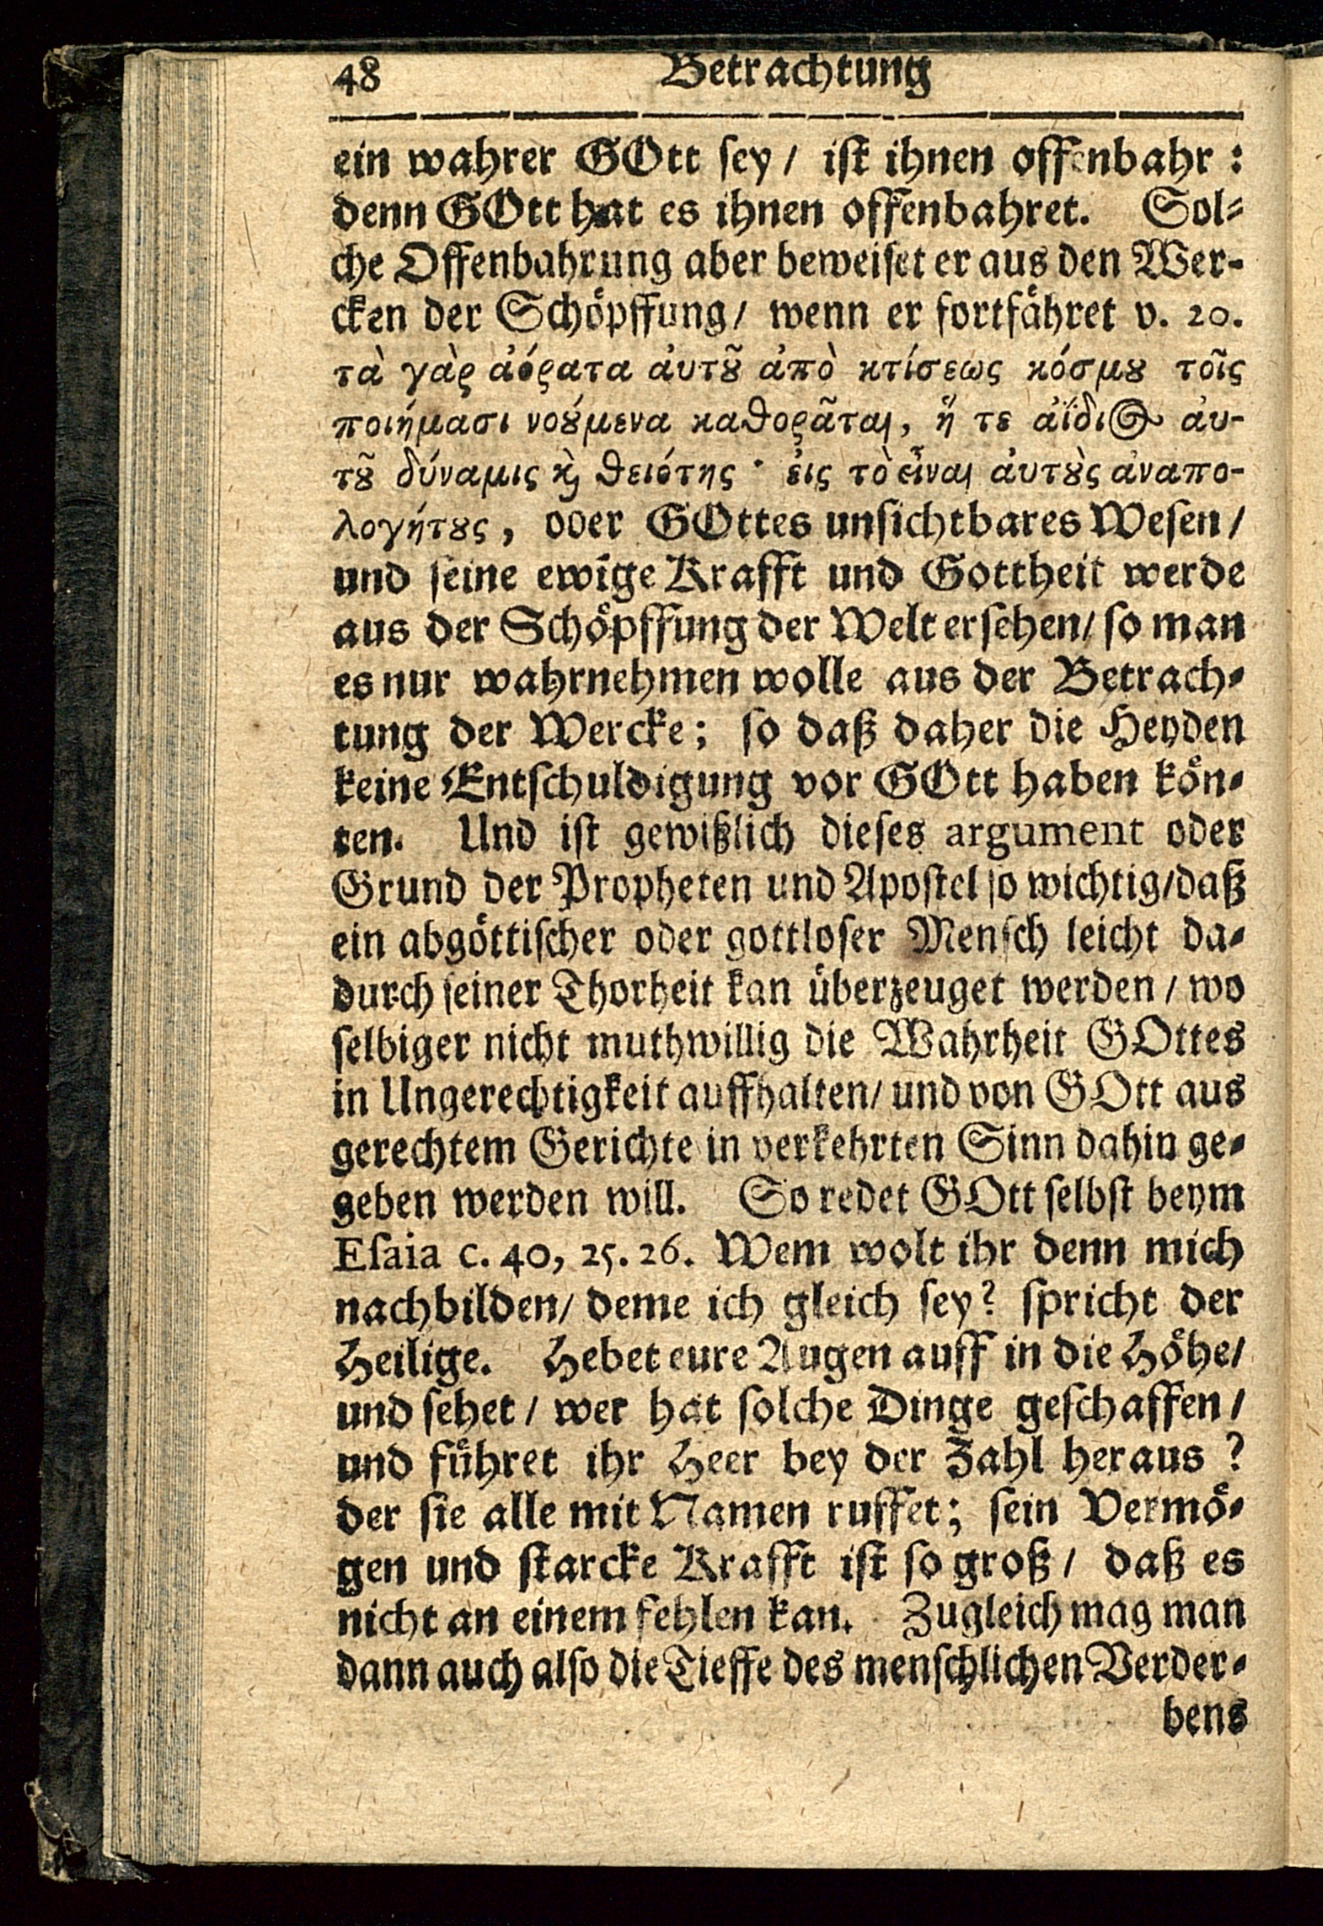 48 Betrachtung
ein wahrer GOtt sey / ist ihnen offenbahr :
denn GOtt hat es ihnen offenbahret. Sol-
che Offenbahrung aber beweiset er aus den Wer-
cken der Schöpffung / wenn er fortfähret v. 20.
τὰ γὰρ ἀόρατα ἀυτȣ͂ ἀπὸ κτίσεως κόσμȣ τοῖς
ποιήμασι νοȣ́μενα καθορᾶται, ἥ τε ἀΐδιος ἀυ-
τȣ͂ δύναμις ϗ θειότης · ἐις τὸ εἶναι ἀυτȣ̀ς ἀναπο-
λογήτȣς, oder GOttes unsichtbares Wesen /
und seine ewige Krafft und Gottheit werde
aus der Schöpffung der Welt ersehen / so man
es nur wahrnehmen wolle aus der Betrach-
tung der Wercke; so daß daher die Heyden
keine Entschuldigung vor GOtt haben kön-
ten. Und ist gewißlich dieses argument oder
Grund der Propheten und Apostel so wichtig / daß
ein abgöttischer oder gottloser Mensch leicht da-
durch seiner Thorheit kan überzeuget werden / wo
selbiger nicht muthwillig die Wahrheit GOttes
in Ungerechtigkeit auffhalten / und von GOtt aus
gerechtem Gerichte in verkehrten Sinn dahin ge-
geben werden will. So redet GOtt selbst beym
Esaia c. 40, 25. 26. Wem wolt ihr denn mich
nachbilden / deme ich gleich sey? spricht der
Heilige. Hebet eure Augen auff in die Höhe /
und sehet / wer hat solche Dinge geschaffen /
und führet ihr Heer bey der Zahl heraus ?
der sie alle mit Namen ruffet; sein Vermö-
gen und starcke Krafft ist so groß / daß es
nicht an einem fehlen kan. Zugleich mag man
dann auch also die Tieffe des menschlichen Verder-
bens